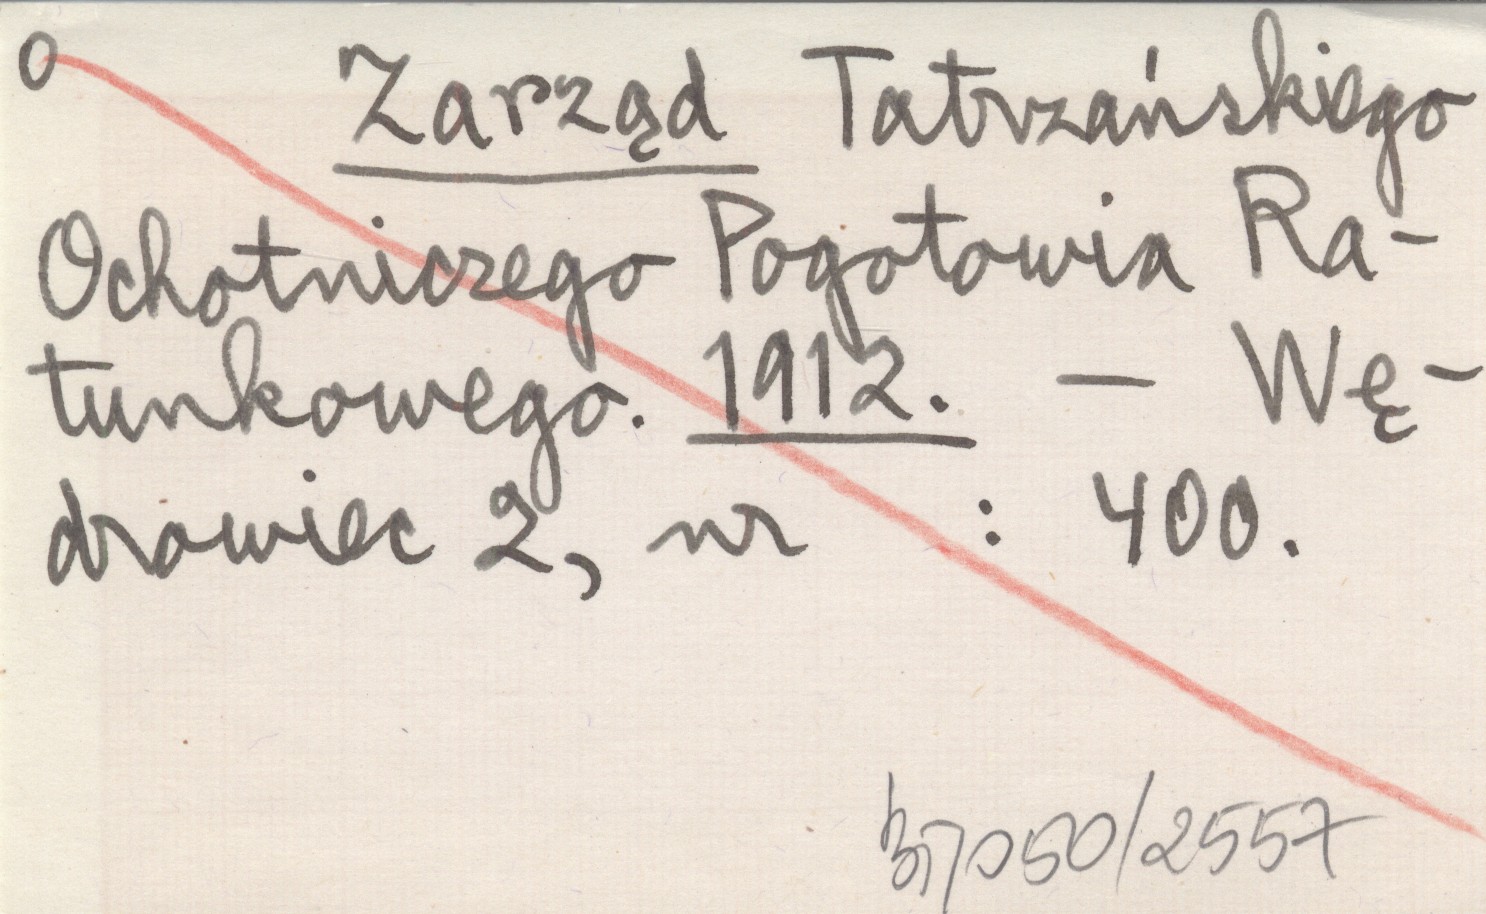 O Zarząd Tatrzańskiego
Ochotniczego Pogotowia Ra-
tunkowego. 1912. — Wę-
drowiec 2, nr : 400.
050/2557